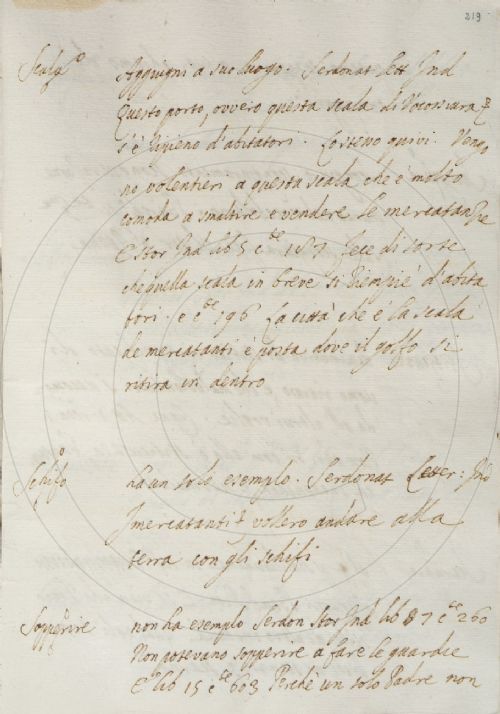 219
Scala
Aggiugni a suo luogo. Serdonat lett Ind
Questo porto, ovvero questa scala di
s'è ripieno d'abitatori. Costeno quivi. Vengo
no volentieri a questa scala che è molto
comoda a smaltire e vendere le mercatanzie
E Stor Ind lib 5 c 187 fece di sorte
che quella scala in breve si riempiè d'abita
tori. E c 196 La città che è la scala
de mercatanti è posta dove il golfo si
ritira in dentro
Schifo
ha un solo esempio. Serdonat Letter: Ind
I mercatanti vollero andare alla
terra con gli schifi
Sopperire
non ha esempio Serdon Stor Ind lib 7 c 260
Non potevano sopperire a fare le guardie
E lib 15 c 603 Perchè un solo Padre non